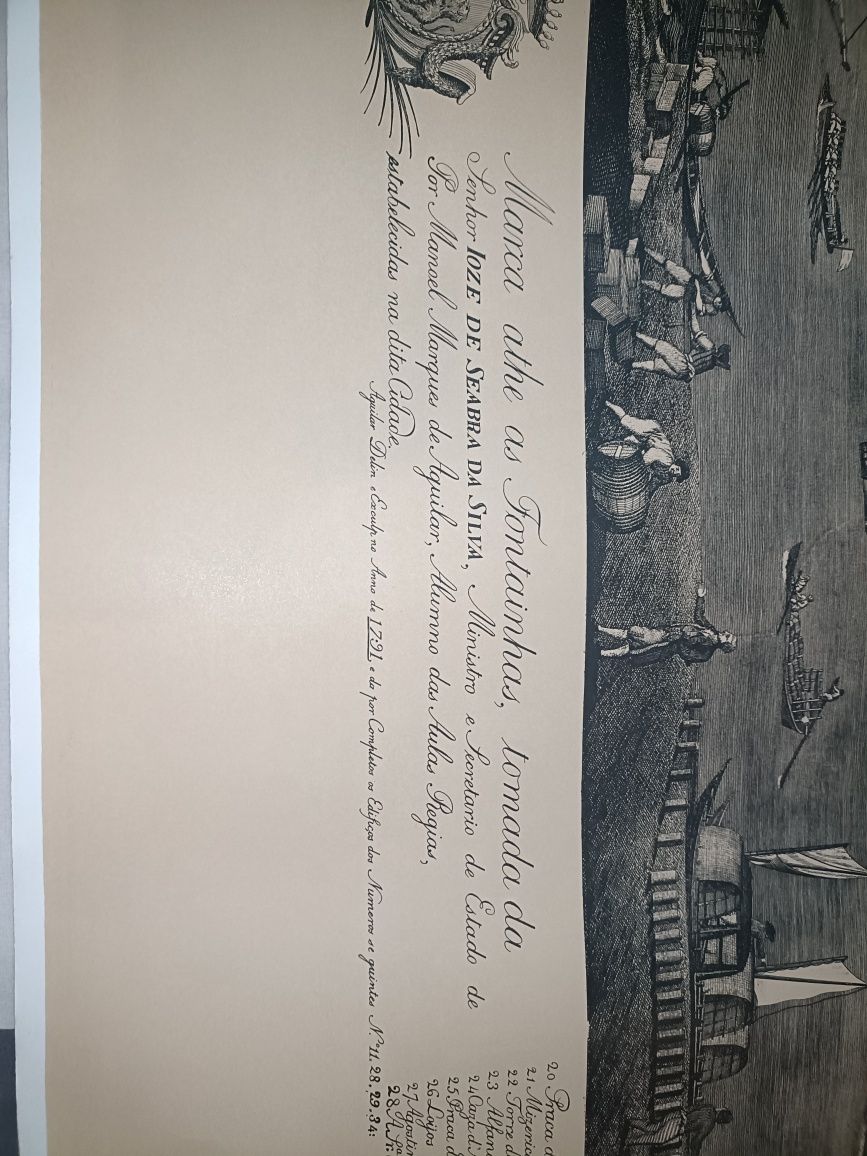 Marca athe as Fontainhas, tomada da
Senhor IOZE DE SEABRA DA SILVA, Ministro e Secretario de Estado de
Por Manoel Marques de Aguilar, Alumno das Aulas Regias,
estabelecidas na dita Cidade.
Aguilar Delin. e Exculp. no Anno de 1791 e da por Completos os Edifiços dos Numeros se guintes N.º 11. 28. 29. 34:
20 Praca d
21 Mizeric
22 Torre d
23 Alfan
24 Caza d
25 Praca d
26 Loijos
27 Agostin
28 A